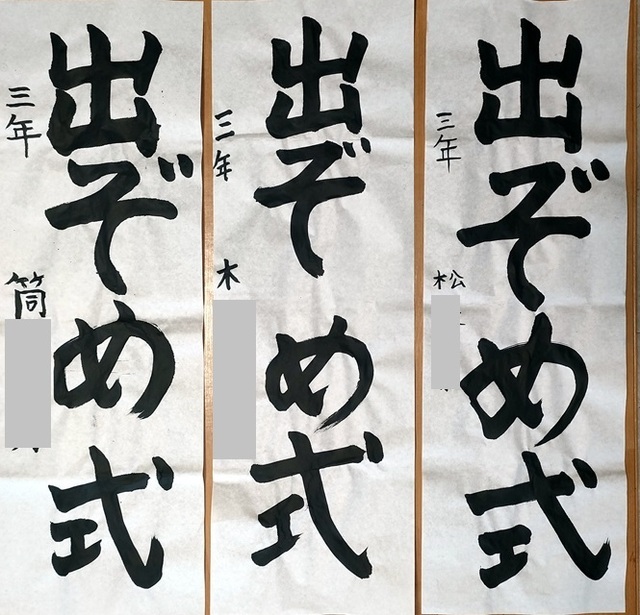 出ぞめ式
三年 松
出ぞめ式
三年 木
出ぞめ式
三年 筒